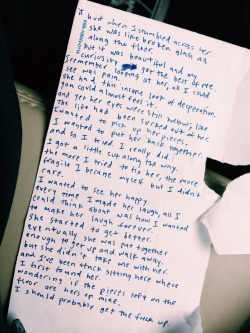 it hurt when I stumbled across her.
she was like broken glass all
along the floor.
but it was beautiful and my
curiosity got the best of me.
I remember looking at her, all I could
see was pain.
she had this insane look of desperation.
you could almost feel it.
and yet her eyes were still hollow, like
the life had been sucked out of her.
I wanted to pick up her pieces.
and put her back together.
so I tried. I really did.
I got a little cut along the way.
the more I tried to fix her, the more
fragile I became myself but I didn't
care.
I wanted to see her happy.
every time I made her laugh, all I
could think about was how I wanted
to make her laugh forever.
she started to get better.
eventually she was put together
enough to get up and walk away.
but she didn't take me with her.
and I've been stuck sitting here where
I first found her.
wondering if the pieces left on the
floor are hers or mine.
I should probably get the fuck up.